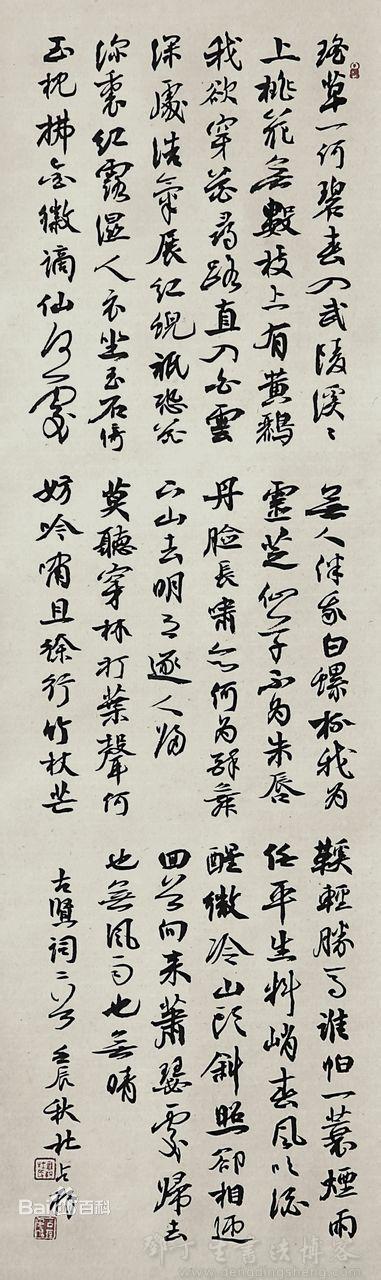 瑤草一何碧春入武陵溪〻
上桃花無數枝上有黃鸝
我欲穿花尋路直入白雲
深處浩氣展紅蜺祇恐花
深裏紅露濕人衣坐玉石倚
玉枕拂金徽謫仙何處
無人伴我白螺杯我為
靈芝仙草不為朱唇
丹臉長嘯亦何為醉舞
下山去明月逐人歸
莫聽穿林打葉聲何
妨吟嘯且徐行竹杖芒
鞵輕勝馬誰怕一蓑煙雨
任平生料峭春風吹酒
醒微冷山頭斜照卻相迎
回首向來蕭瑟處歸去
也無風雨也無晴
古賢詞二首 壬辰秋杜占
Bai百科
鄧丁生書法博客
www.dengdingsheng.com